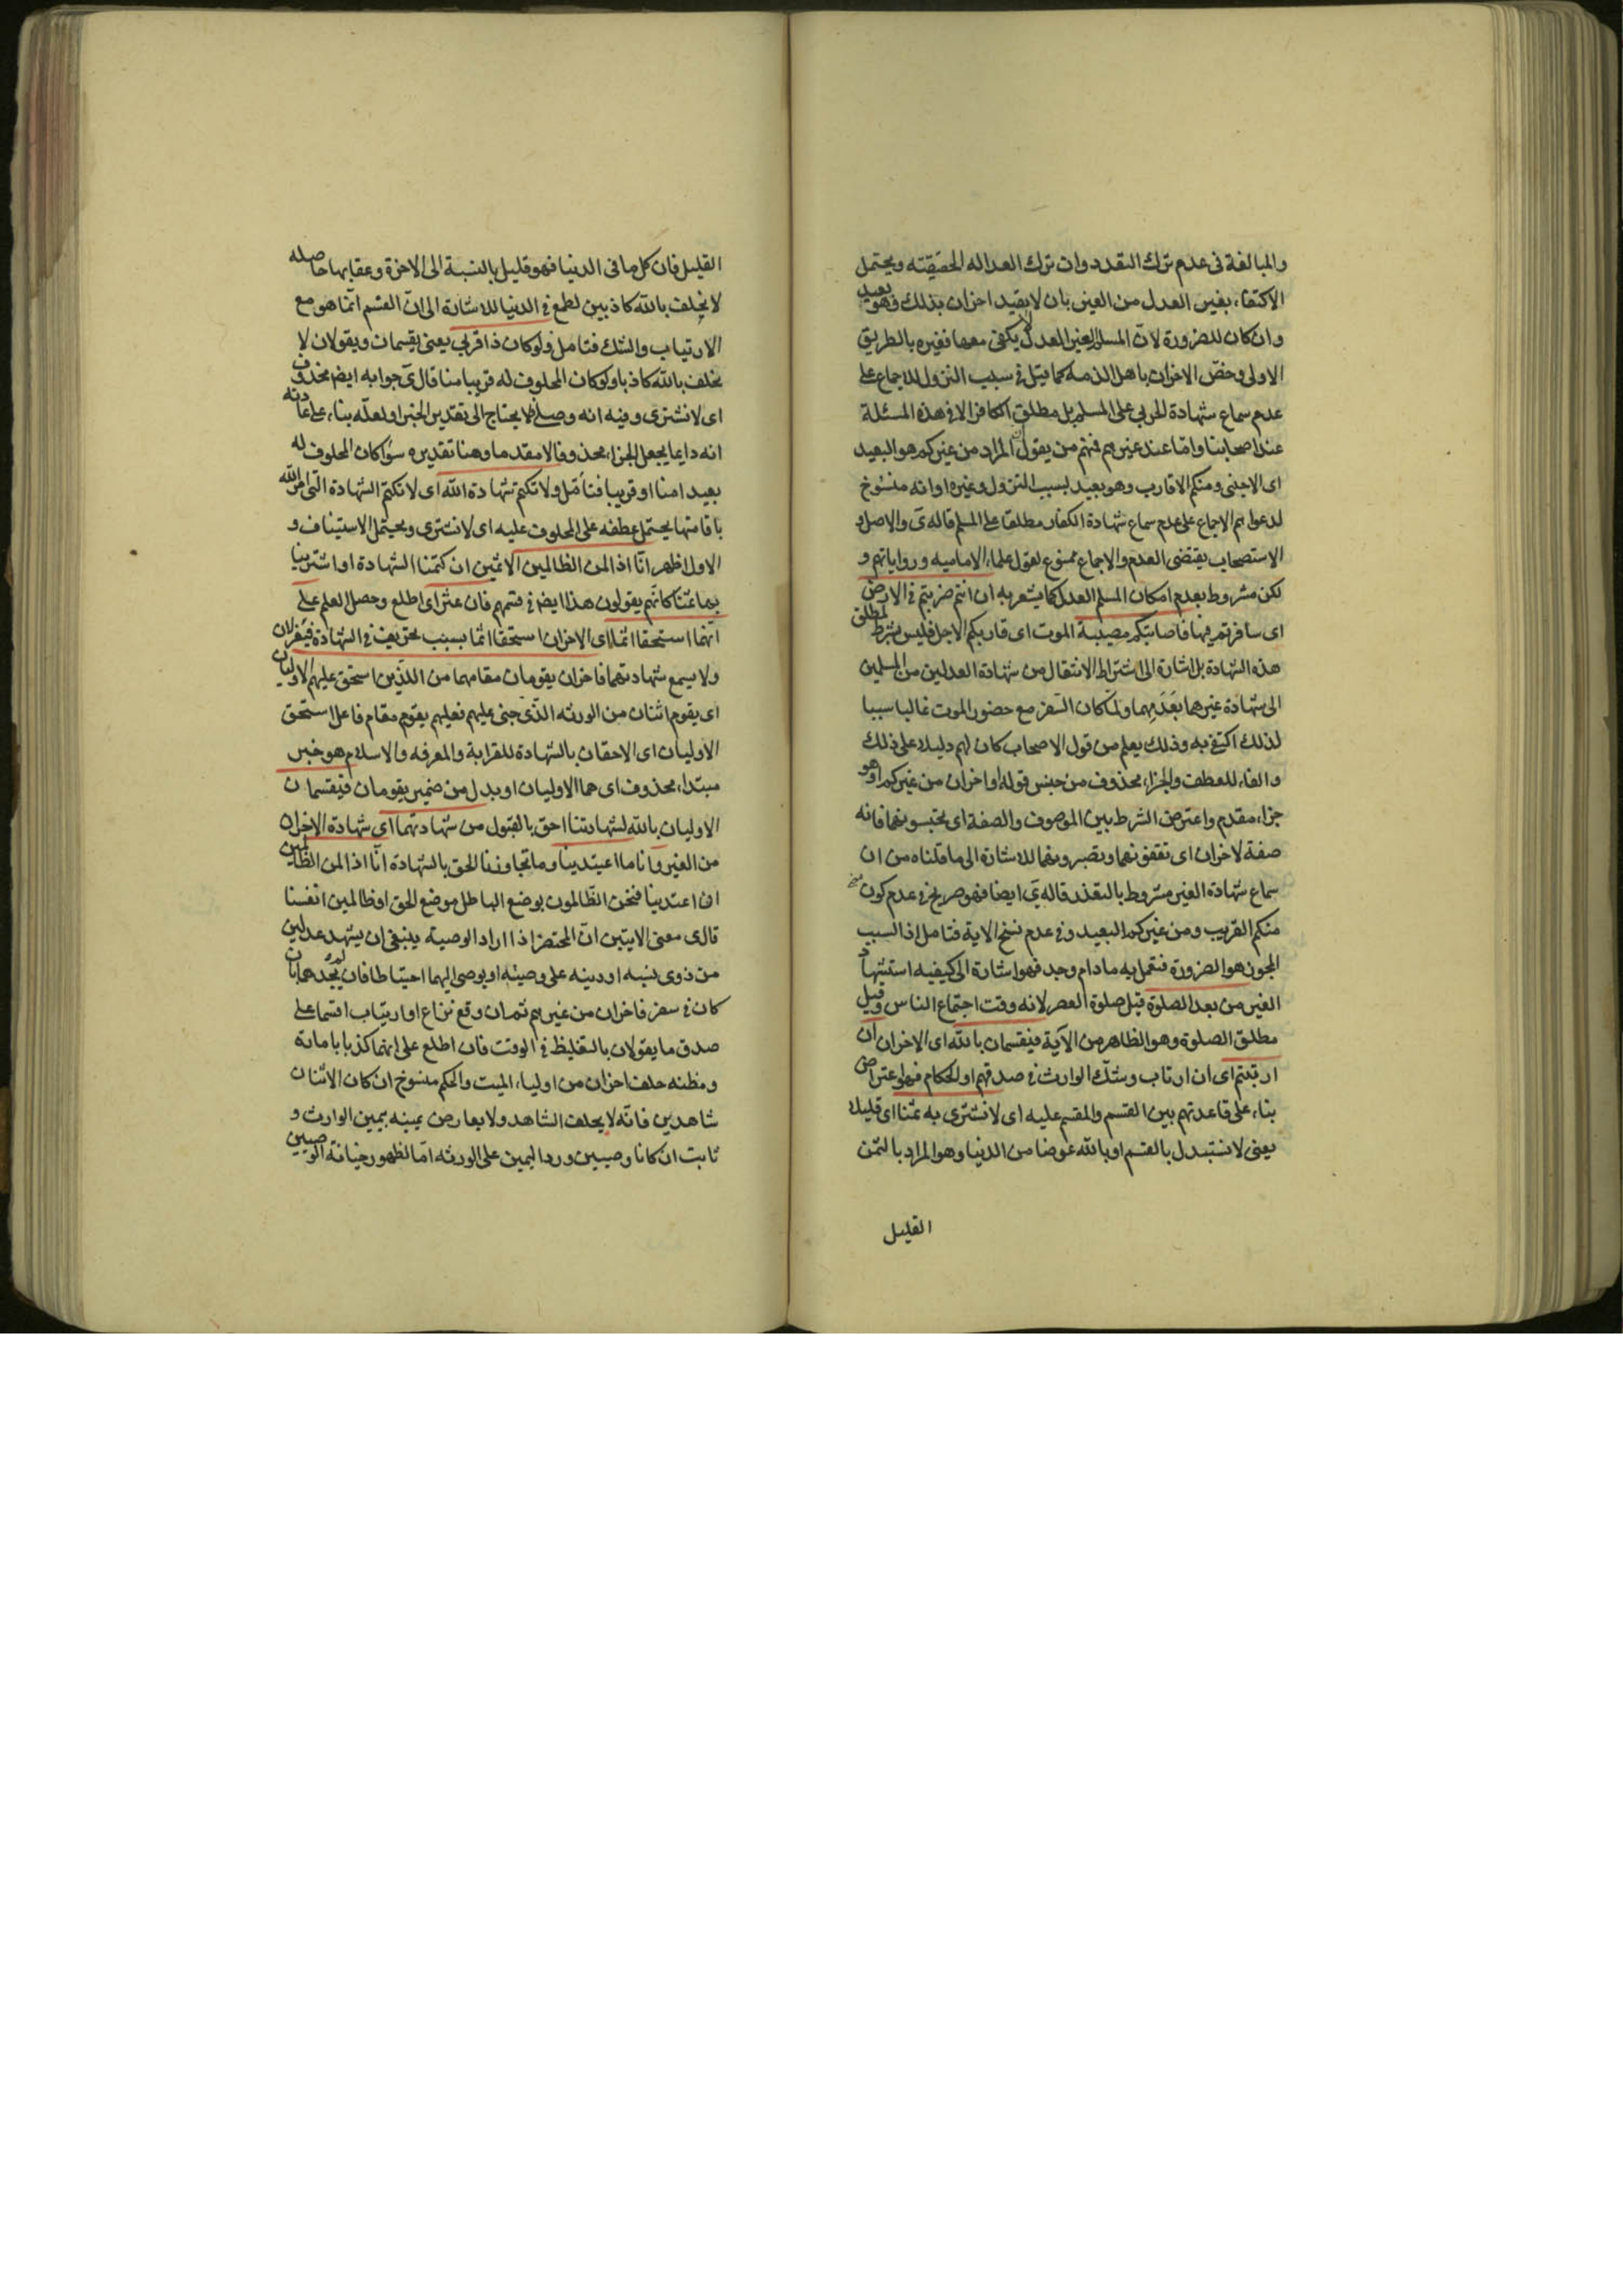 والمبالغة فى عدم ترك التعدد وان ترك العداله الحقيقته ويحتمل
الاكتفاء بغير العدل من الغير بان لا يقيد اخران بذلك وهو بعيد
وان كان للضرورة لانّ المسلم الغير العدل لا يكفى معها فغيره بالطريق
الاولى وخصّ الاخران باهل الذمه كما قيل فى سبب النزول للاجماع على
عدم سماع شهادة الحربى على المسلم بل مطلق الكافر الا فى هذه المسئلة
عند اصحابنا وامّا عند غيرهم فمنهم من يقول انّ المراد من غيركم هو البعيد
اى الاجنبى ومنكم الاقارب وهو بعيد لسبب النزول وغيره او انه منسوخ
لدعواهم الاجماع على عدم سماع شهادة الكفار مطلقا على المسلم قاله ى والاصل و
الاستصحاب يقتضى العدم والاجماع ممنوع لقول علماء الاماميه ورواياتهم و
لكن مشروط بعدم امكان المسلم العدل كما يشعر به ان انتم ضربتم فى الارض
اى سافرتم فيها فاصابتكم مصيبة الموت اى قاربكم الاجل فليس بشرط لمطلق
هذه الشهادة بل اشارة الى اشتراط الانتقال من شهادة العدلين من المسلمين
الى شهادة غيرهما بعَدَمِهما ولمّا كان السّفر مع حضور الموت غالبا سببا
لذلك اكتفى به وذلك يعلم من قول الاصحاب كان لهم دليلا على ذلك
والفاء للعطف والجزاء محذوف من جنس قوله او اخران من غيركم او هو
جزاء مقدم واعترض الشرط بين الموصوف والصفة اى تحبسونهما فانه
صفة لاخران اى تقفونهما وتصبرونهما للاشارة الى ما قلناه من ان
سماع شهادة الغير مشروط بالتعذر قاله ى ايضا فهو صريح فى عدم كون
منكم القريب ومن غيركم البعيد وفى عدم نسخ الاية فتامل اذ السبب
المجوز هو الضرورة فنعمل به مادام وجد فهو اشارة الى كيفيه استشهاد
الغير من بعد الصلوة قيل صلوة العصر لانه وقت اجتماع الناس وقيل
مطلق الصلوة وهو الظاهر من الآية فيقسمان بالله اى الاخران ان
ارتبتم اى ان ارتاب وشكّ الوارث فى صدقهم او الحكام فهو اعتراض
بناء على قاعدتهم بين القسم والمقسم عليه اى لا نشترى به ثمنا اى قليلا
يعنى لا نستبدل بالقسم او بالله عوضا من الدنيا وهو المراد بالثمن
القليل
القليل فان كل ما فى الدنيا فهو قليل بالنسبة الى الاخرة وعقابها حاصله
لا نحلف بالله كاذبين لطمع فى الدنيا للاشارة الى انّ القسم انّما هو مع
الارتياب والشك فتامل ولو كان ذا قربى يعنى يقسمان ويقولان لا
نحلف بالله كاذبا ولو كان المحلوف له قريبا منا قال ى جوابه ايضا محذوف
اى لا نشترى وفيه انه وصلى لا يحتاج الى تقدير الجزاء ولعلّه بناء على عادته
انه دايما يجعل الجزاء محذوفا لا مقدما وهنا تقديره سواء كان المحلوف له
بعيدا منا او قريبا فتأمّل ولا نكتم شهادة الله اى لا نكتم الشهادة التى امر الله
باقامتها يحتمل عطفه على المحلوف عليه اى لا نشترى ويحتمل الاستيناف و
الاول اظهر انّا اذا لمن الظالمين الاثمين ان كتمنا الشهادة او اشترينا
بها ثمنا كانهم يقولون هذا ايضا فى قسمهم فان عثر اى اطلع وحصل العلم على
انهما استحقا اثما اى الاخران استحقا اثما بسبب تحريف فى الشهادة فيعزلان
ولا يسمع شهادتهما فاخران يقومان مقامهما من الذين استحق عليهم الاوليان
اى يقوم اثنان من الورثه الذى جنى عليهم فعليهم يقوم مقام فاعل استحق
الاوليان اى الاحقان بالشهادة للقرابة والمعرفه والاسلام هو خبر
مبتداء محذوف اى هما الاوليان او بدل من ضمير يقومان فيقسمان
الاوليان بالله لشهادتنا احق بالقبول من شهادتهما اى شهادة الاخران
من الغير وانا ما اعتدينا وما تجاوزنا الحق بالشهادة انّا اذا لمن الظالمين
ان اعتدينا فنحن الظّالمون بوضع الباطل موضع الحق او ظالمين انفسنا
قال ى معنى الايتين انّ المحتضر اذا اراد الوصية ينبغى ان يشهد عدلين
من ذوى نسبه او دينه على وصيته او يوصى اليهما احتياطا فان لم يجدهما بان
كان فى سفر فاخران من غيرهم ثم ان وقع نزاع او ارتياب اقسما على
صدق ما يقولان بالتغليظ فى الوقت فان اطلع على انهما كذبا بامارة
ومظنه حلف اخران من اولياء الميت والحكم منسوخ ان كان الاثنان
شاهدين فانّه لا يحلف الشاهد ولا يعارض يمينه بيمين الوارث و
ثابت ان كانا وصيين وردّ اليمين على الورثه امّا لظهور خيانة الوصيين